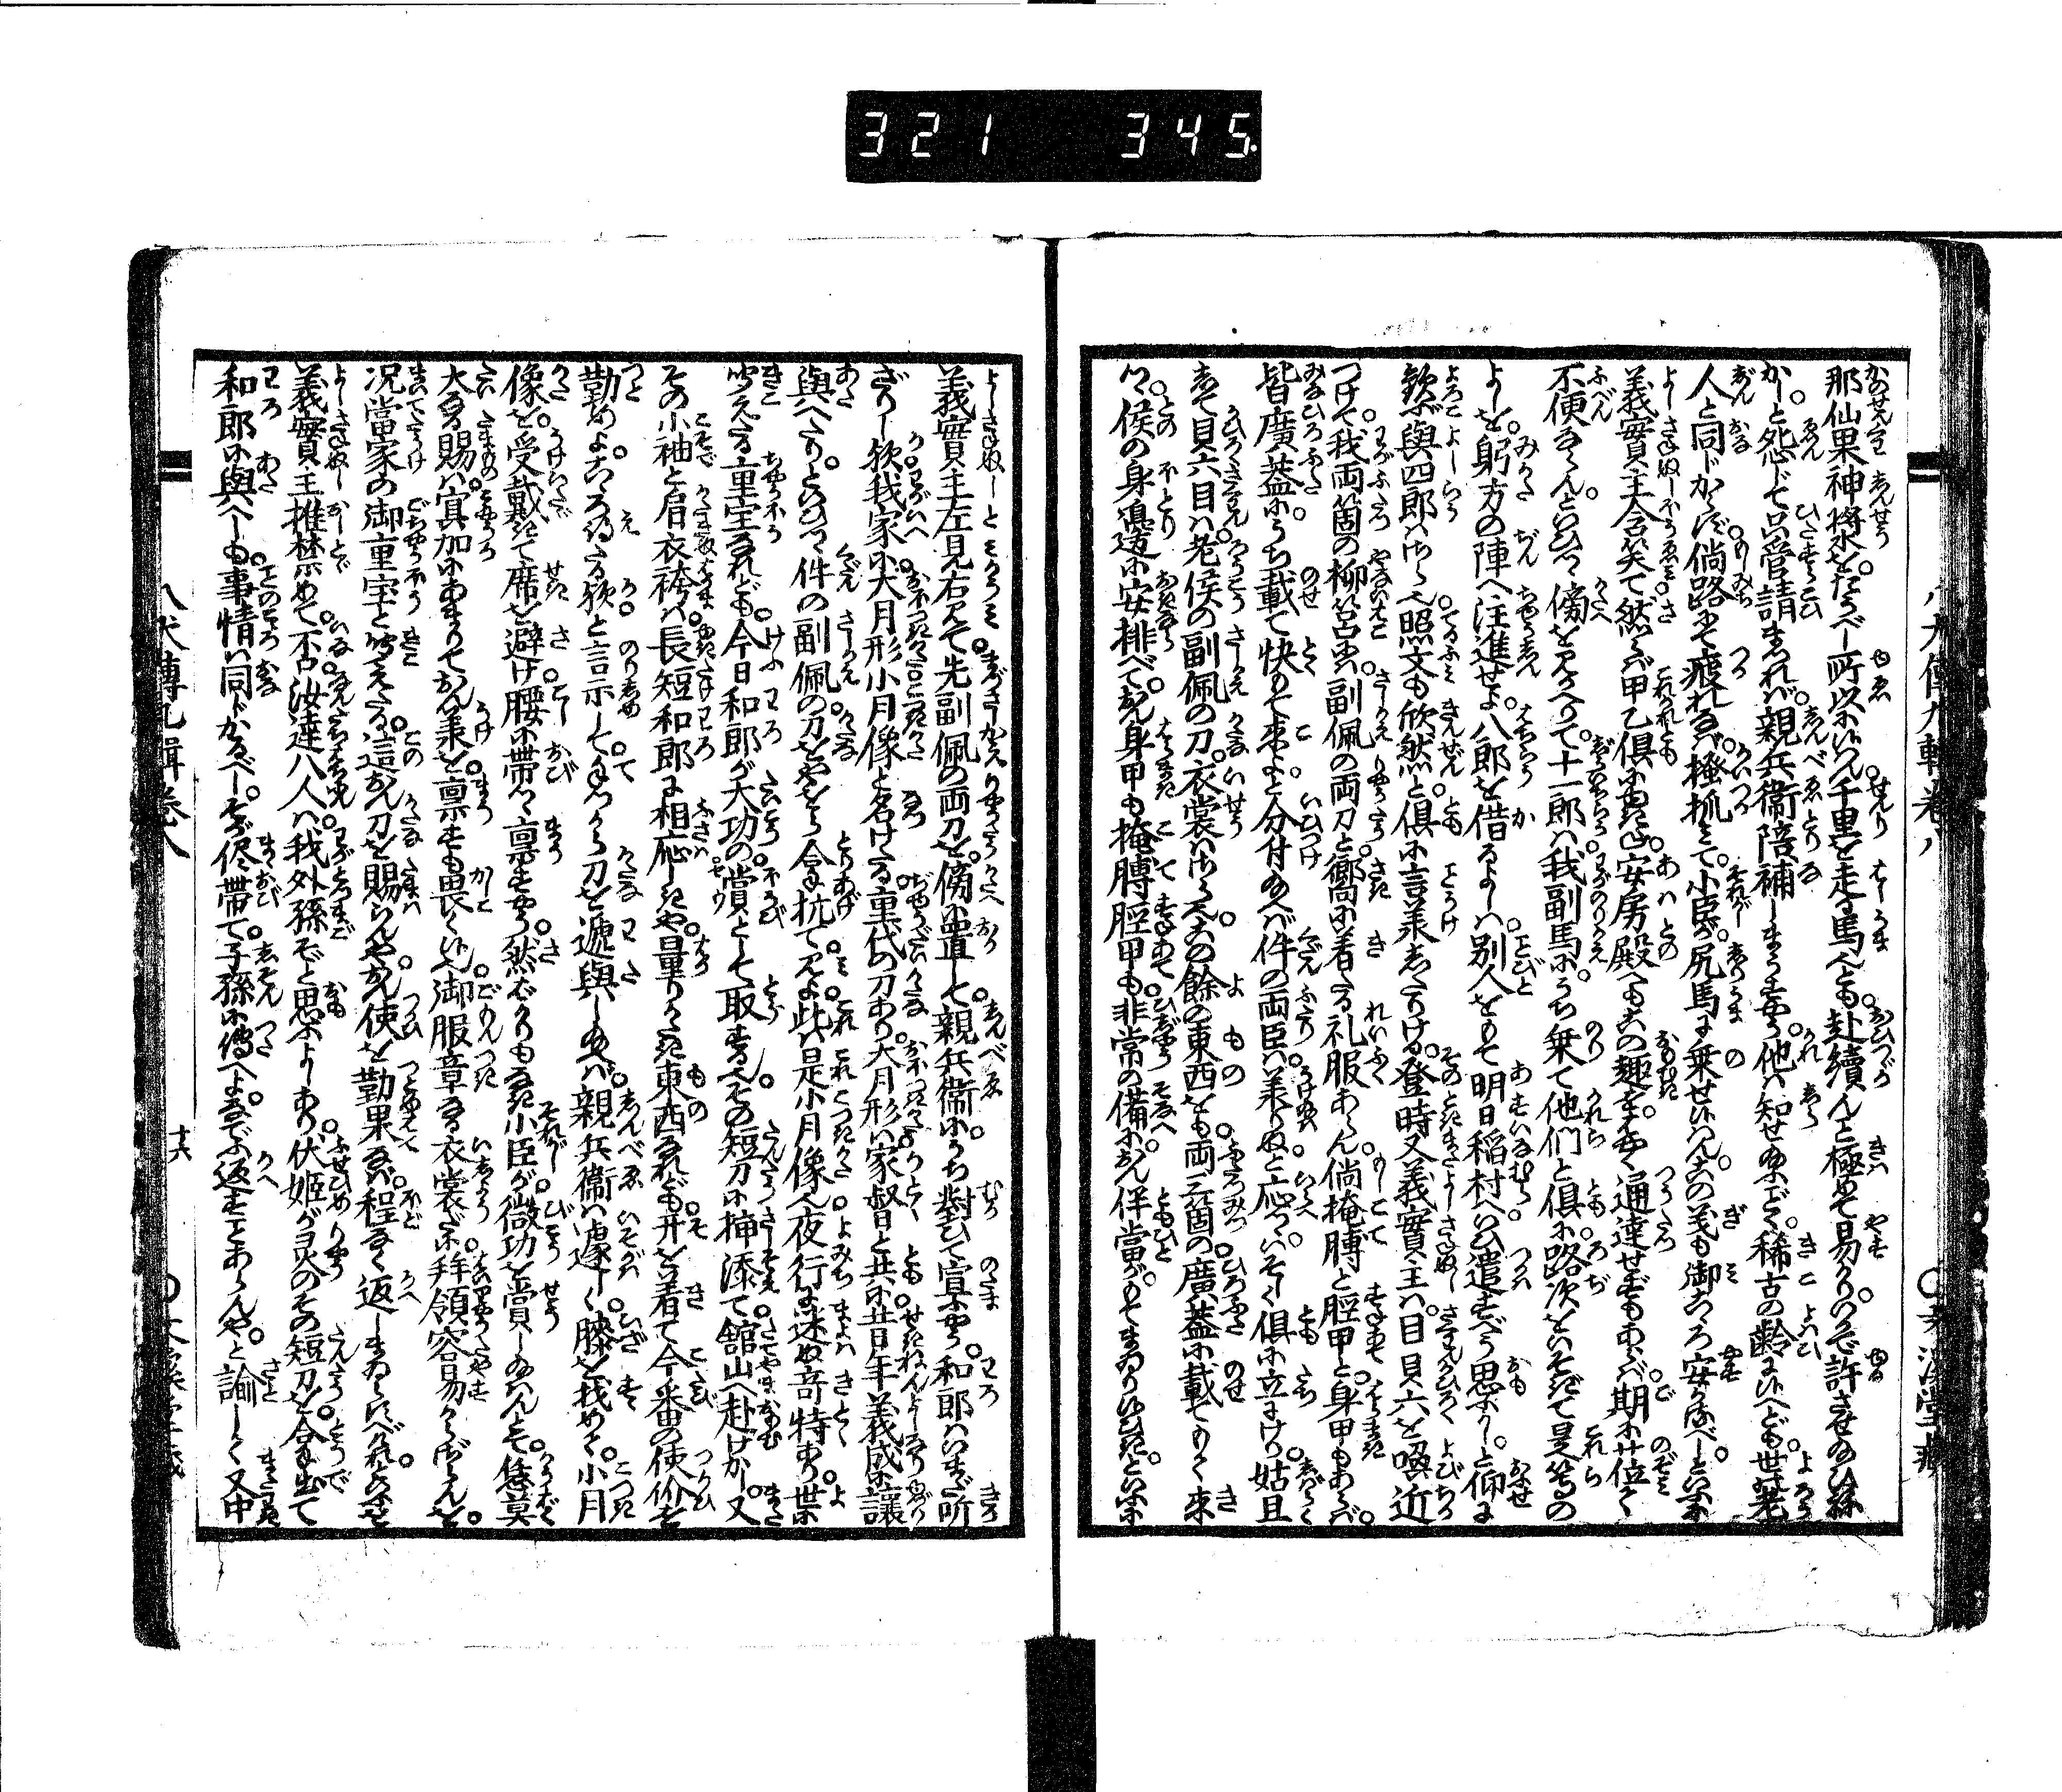 321 345
八犬傳九輯卷八
那仙果神將を。だうべし所以にいへ。千里を走る馬也とも。赴續んと極めて易かり。のうで許させ給ひね
かしと怨じて只管請まうせば。親兵衛陪補しまうすやう。他は知せ給ふごとく。稀古の齢にいへども。世の老
人と同じからず。倘路にて疲れなば。搔抓みて。小臣が尻馬に乗せいはん。この義も御こゝろ安かるべしといふに
義實主含笑て。然らば甲乙俱にゆきね。安房殿へもこの趣を。はやく通達せずもあらば。期に莅みて
不便ならんといひつゝ傍を見かへりて。十一郎は我副馬に。うち乗て他們と俱に。路次をいそぎて是等の
よしを。躬方の陣へ注進せよ。八郎を借るよしは。別人をもて明日稲村へ。いひ遣すべう思ふかし。と仰に
歓ぶ與四郎はさらへ。照文も欣然と。俱に言承したりける。登時又義實主は。目貝六を喚近
つけて。我両箇の柳筥に。副佩の両刀と。嚮に着たる礼服あらん。倘掩膊と脛甲と。身甲もあらば。
皆廣蓋にうち載て。快もて來よ。と分付給へば。件の両臣は承りぬと応つゝ。いそしく俱に立にけり。姑且
して貝六目は。老侯の副佩の刀。衣裳はさら也。この餘の東西をも。両三箇の廣蓋に載て。もて來
つ。侯の身邊に安排べて。おん身甲も掩膊脛甲も。非常の備に。おん伴當が。もてまゐりゆひき。といふに
義實主左見右見て。先副佩の両刀を。傍に置して。親兵衛に。うち對ひて宣ふやう。和郎はいまだ所
ざりし歟。我家に大月形小月像と名けたる。重代の刀あり。大月形は家督と共に。昔年義成に讓
與へたり。といひつゝ件の副佩の刀をやをら拿抗て。見よ。此は是小月像也。夜行に迷ぬ奇特あり。世に
聞えたる重宝なれども。今日和郎が大功の。賞として取する也。その短刀に挿添て。舘山へ赴けかし。又
その小袖と肩衣袴は。長短和郎に相応しきや。量りかたき東西なれども。开を着て今番の使价を
勤めよ。こゝろ得たる歟。と言示して。手づから刀を遞與し給へば。親兵衛は遽しく。膝を找めて。小月
像を。受戴きて席を避け。腰に帶つゝ稟すやう。然ばかりもなき小臣が。微功を賞し給はんとて。恁莫
大なる賜は。冥加にあまりておん承を。稟すも畏くいへ。御服章なる衣裳だに。拜領容易からざらんを。
况當家の御重宝と。聞えたる。這おん刀を賜らんや。おん使を勤果なば。程なく返しまゐらすべけれといふを
義實主推禁めて。不。汝達八人は。我外孫ぞと思ふよしあり。伏姫が灵のその短刀を。拿出て
和郎に與へしも。事情は同じかるべし。そが侭帶て。子孫に傳へよ。なでふ返すことあらんや。と諭しく。又申
八犬傳九輯卷八
十六